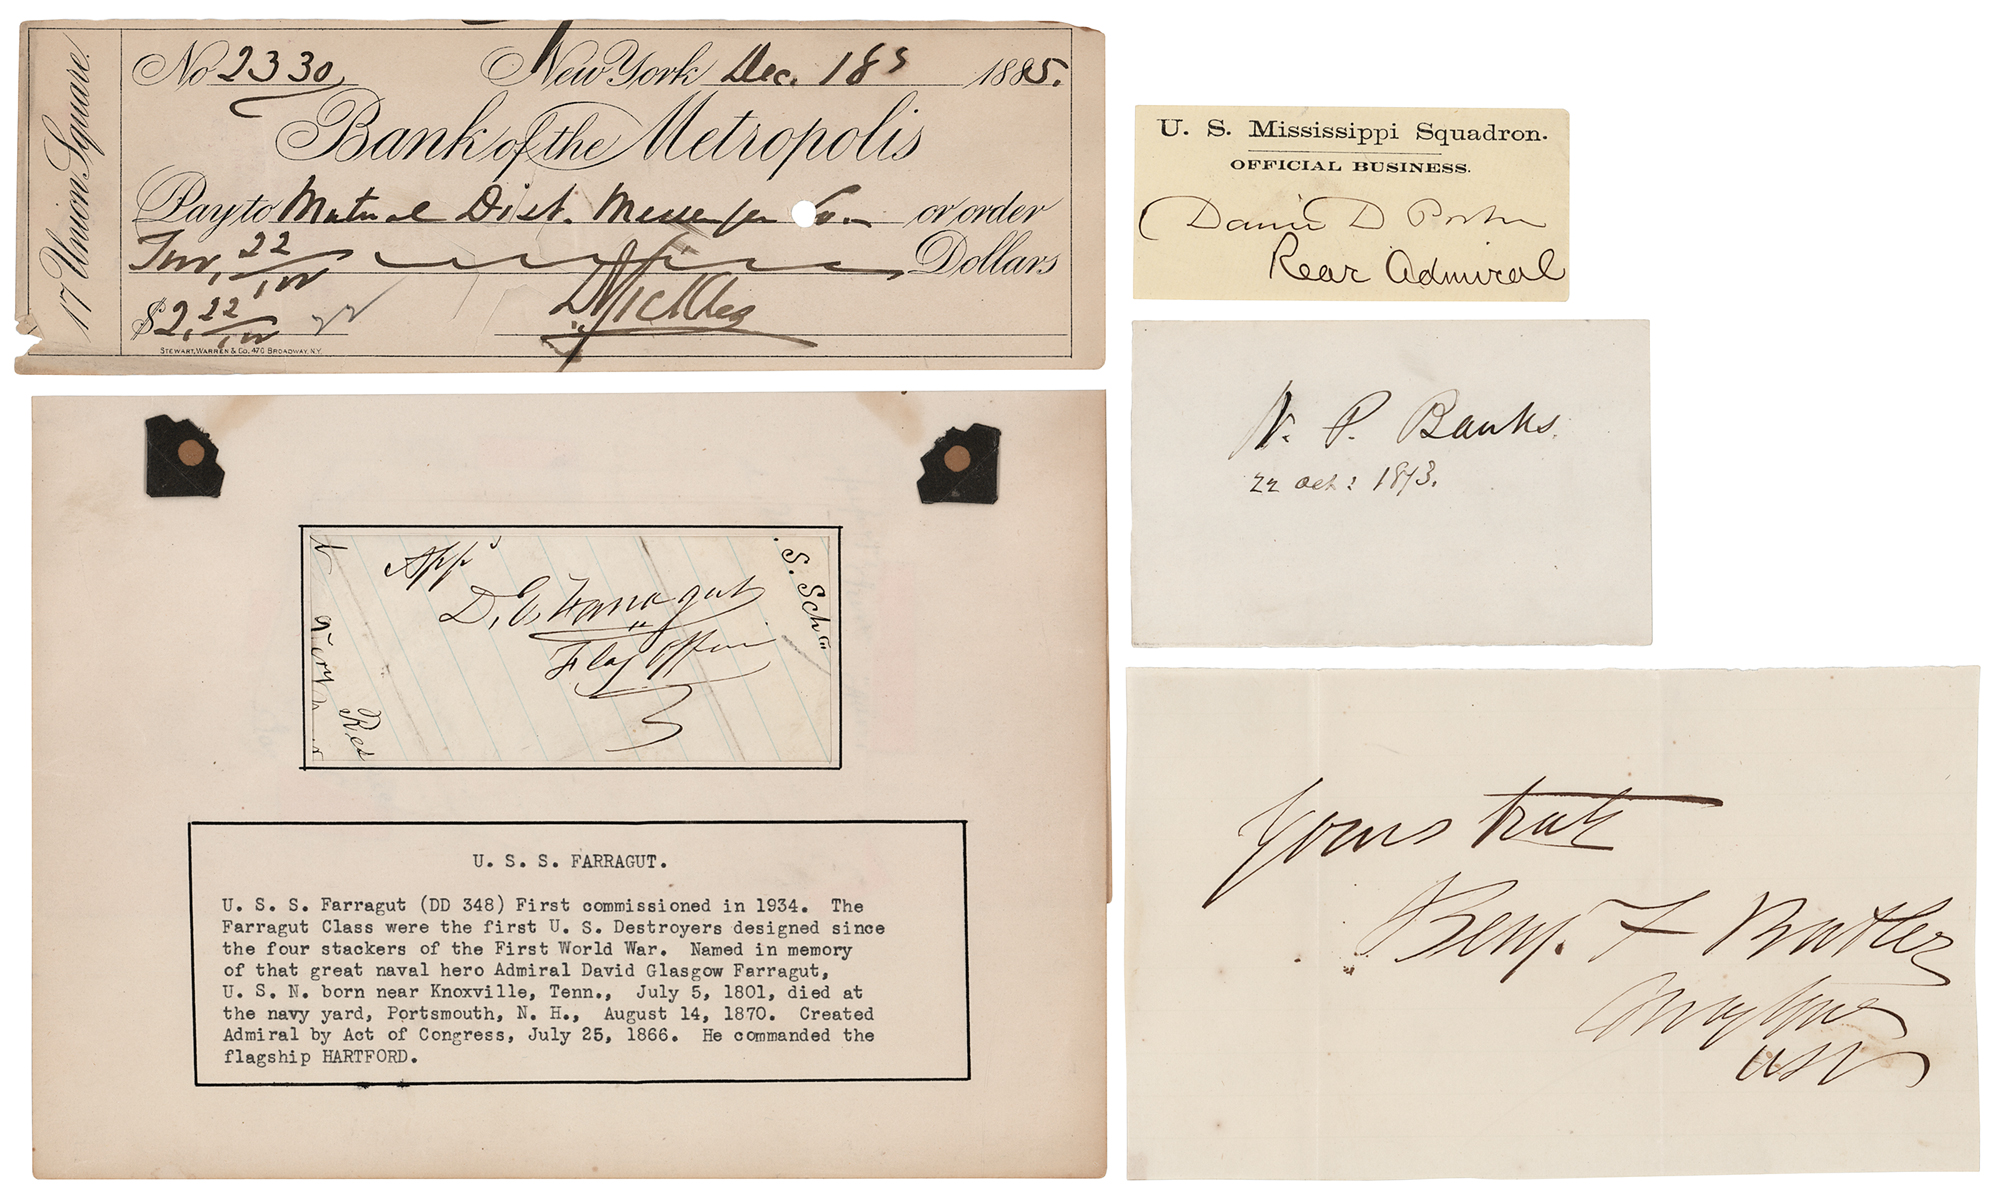 17 Union Square.
No 2330 New York Dec. 18s 1885.
Bank of the Metropolis
Pay to Mutual Dist. Messenger Co. or order
Two, 22/100 Dollars
$2, 22/100
D Sickles
STEWART, WARREN & CO. 470 BROADWAY. N.Y.
U. S. Mississippi Squadron.
OFFICIAL BUSINESS.
David D Porter
Rear Admiral
N. P. Banks.
22 Oct: 1873.
Appd
D. G. Farragut
Flag Officer
S. Schn
Res
U. S. S. FARRAGUT.
U. S. S. Farragut (DD 348) First commissioned in 1934. The
Farragut Class were the first U. S. Destroyers designed since
the four stackers of the First World War. Named in memory
of that great naval hero Admiral David Glasgow Farragut,
U. S. N. born near Knoxville, Tenn., July 5, 1801, died at
the navy yard, Portsmouth, N. H., August 14, 1870. Created
Admiral by Act of Congress, July 25, 1866. He commanded the
flagship HARTFORD.
Yours truly
Benj. F Butler